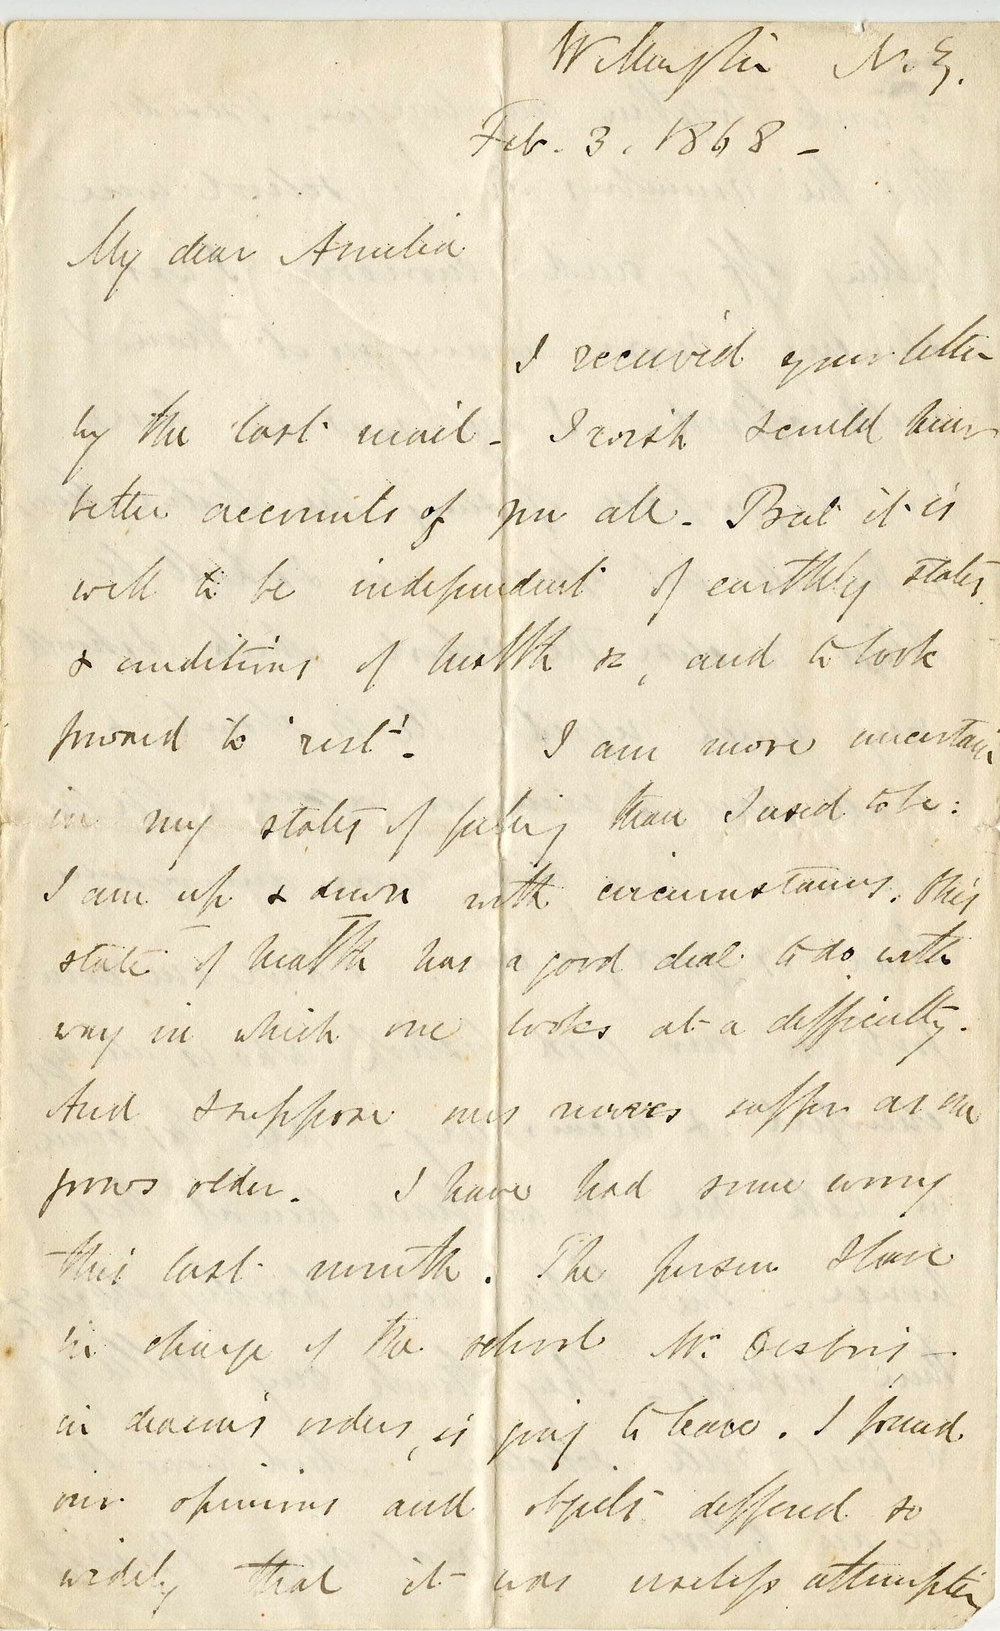 Wellington N.Z.
Feb. 3. 1868 -
My dear Amelia
I received your letter
by the last mail - I wish I could hear
better accounts of you all - But it is
well to be independent of earthly states
& conditions of health &c, and to look
forward to 'rest' - I am more uncertain
in my states of feeling than I used to be:
I am up & down with circumstances. This
state of health has a good deal to do with
way in which one looks at a difficulty.
And I suppose ones nerves suffer as one
grows older. I have had some worry
this last month. The person I have
in charge of the school Mr.
in deacon's orders, is going to leave. I found
our opinions and objects differed so
widely that it was useless attempting